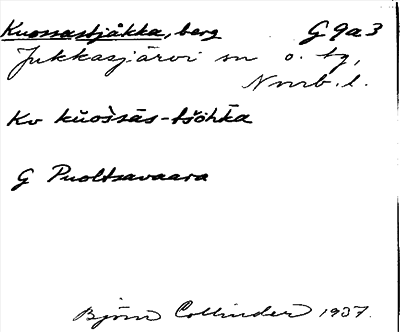 Kuossastjåkka, berg G 9a3
Jukkasjärvi sn o. tg,
Norrb. l.
Kv kŭos̀sās-tšōhḱa
G Puoltsavaara
Björn Collinder 1937.